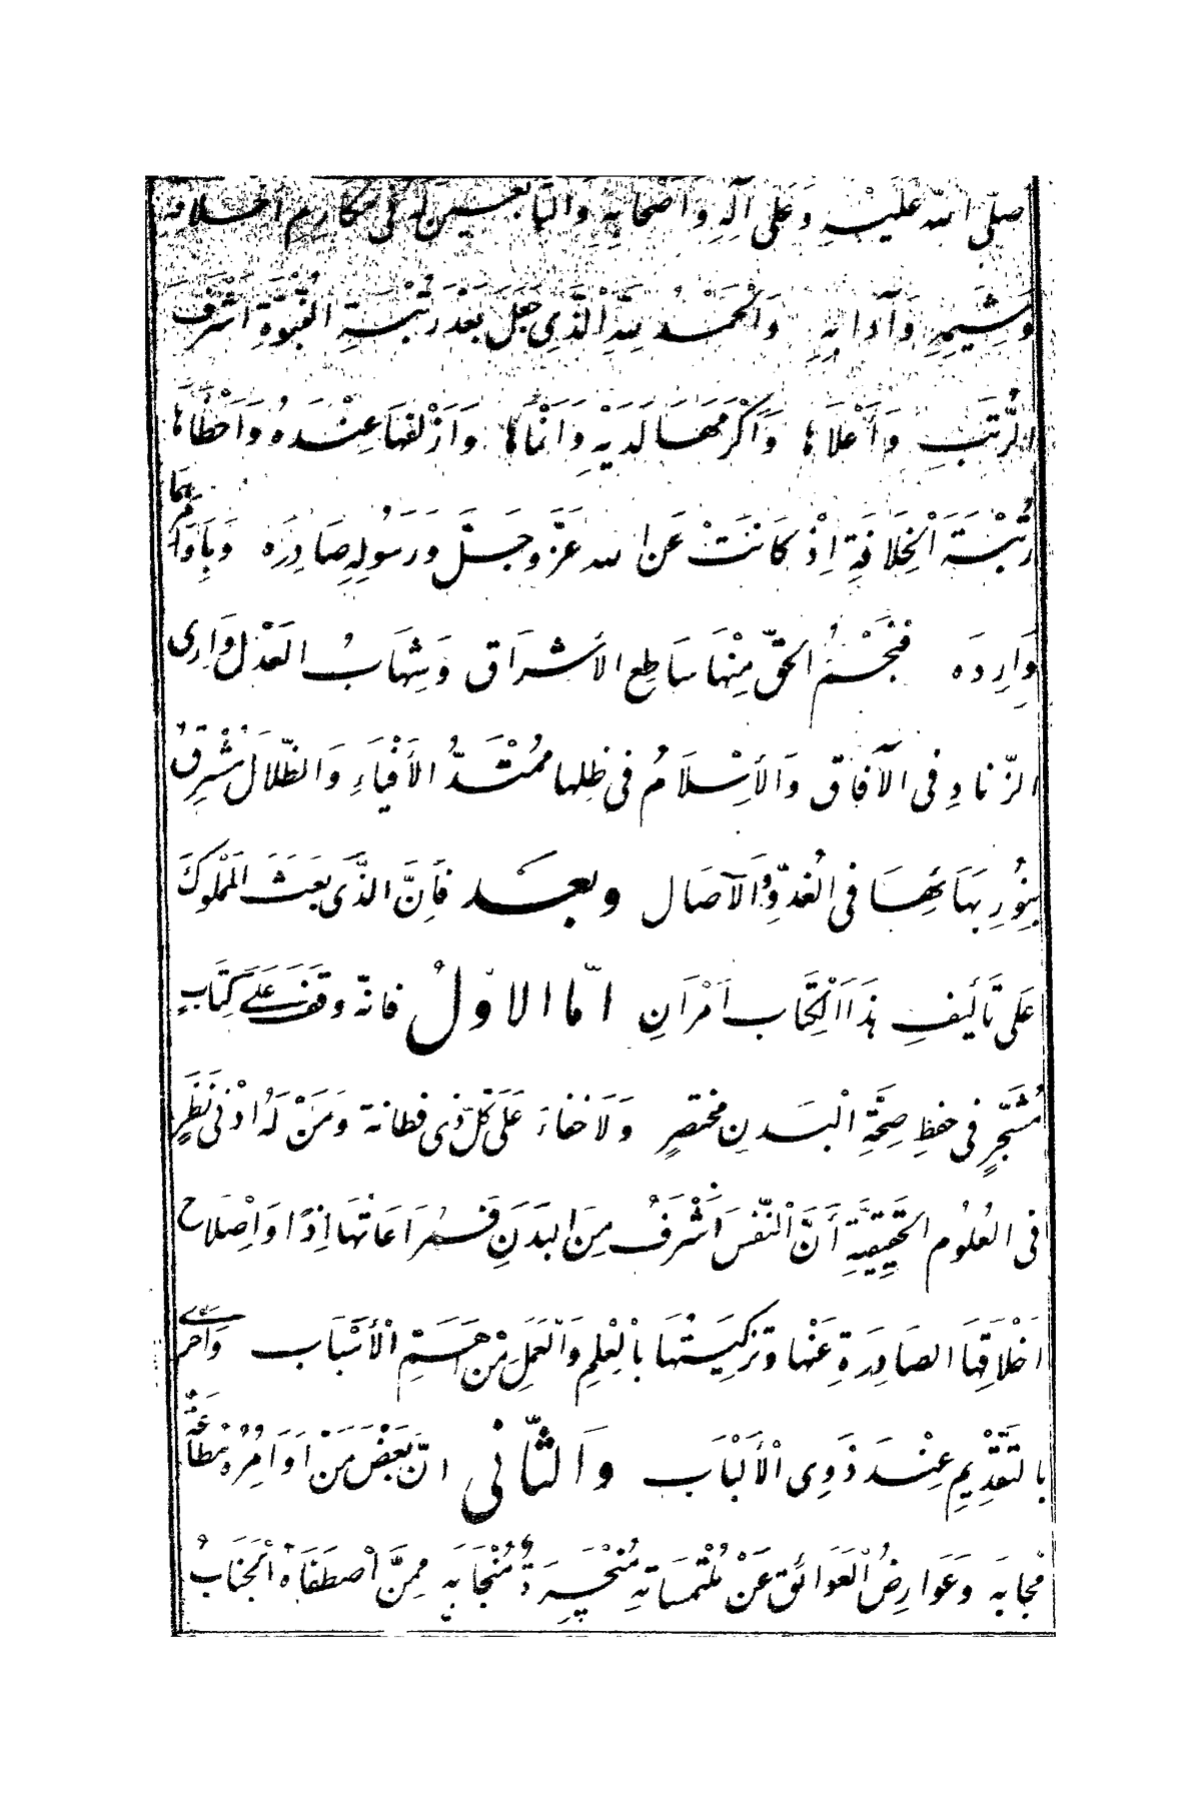 صلى الله عليه وَعَلى آلِهِ وَأصْحابِهِ وَالتابعين لَهُ فى مكارِمِ أخلاقه
وَشِيَمِهِ وَآدابِهِ وَالْحَمْدُ لِلّهِ الَّذِى جَعَلَ بَعْدَ رُتْبَةِ النُّبُوَّةِ أَشْرَفَ
الرُّتَبِ وَأَعْلاَهَا وَأَكْرَمَهَا لَدَيْهِ وَأَنْمَاهَا وَأَزْلَفَهَا عِنْدَهُ وَأَحْظَاهَا
رُتْبَةَ الْخِلَافَةِ إِذْ كَانَتْ عَنِ الله عَزَّ وَجَلَّ وَرَسُولِهِ صَادِرَه وَبِأَوَامِرِهِمَا
وَارِدَه فَنَجْمُ الحَقِّ مِنْهَا سَاطِع الأشراق وَشِهَابُ العَدْل وَارِى
الزّنادِ فى الآفاق وَالأِسْلَامُ فى ظِلها مُمْتَدُّ الأَفْيَاءِ وَالظّلاَل مُشْرِقٌ
بِنُورِ بَهَائِهَا فى الْغُدُوِّ وَالآصَال وبعد فَاِنَّ الذَّى بَعَثَ المَمْلُوكَ
عَلى تَألِيفِ هذَا الْكِتَاب أَمْرَانِ امّا الاوّلُ فانّه وقفَ عَلَى كِتَابٍ
مُشَجَّرٍ فى حفظِ صِحَّةِ الْبَدنِ مختصرٍ وَلَا خفاءَ عَلَى كلّ ذى فطانة وَمَنْ لَهُ ادْنى نَظَرٍ
فى العُلُوم الحَقِيقِيَّةِ أَنَّ النّفْسَ أَشْرَفُ مِنَ البَدَنِ فَمُرَاعَاتُهَا اِذًا وَاِصْلَاح
اَخْلَاقِهَا الصَادِرَةِ عَنْها وَتزكِيَتُهَا بالْعِلمِ وَالْعَمَلِ مِنْ اَهَمِّ الْأَسْبَاب وَاَحرى
بالتَّقْدِيمِ عِنْدَ ذَوِى الْأَلبَاب وَالثّانى انّ بَعْضَ مَنْ اَوَامِرُهُ مُطَاعَةٌ
مُجابه وَعَوَارِضُ الْعَوَائق عَنْ مُلْتَمساتِهِ مُنْحَسِرَةٌ مُنْجَابَه مِمَّنِ اصْطَفَاهُ الْجَنَابُ